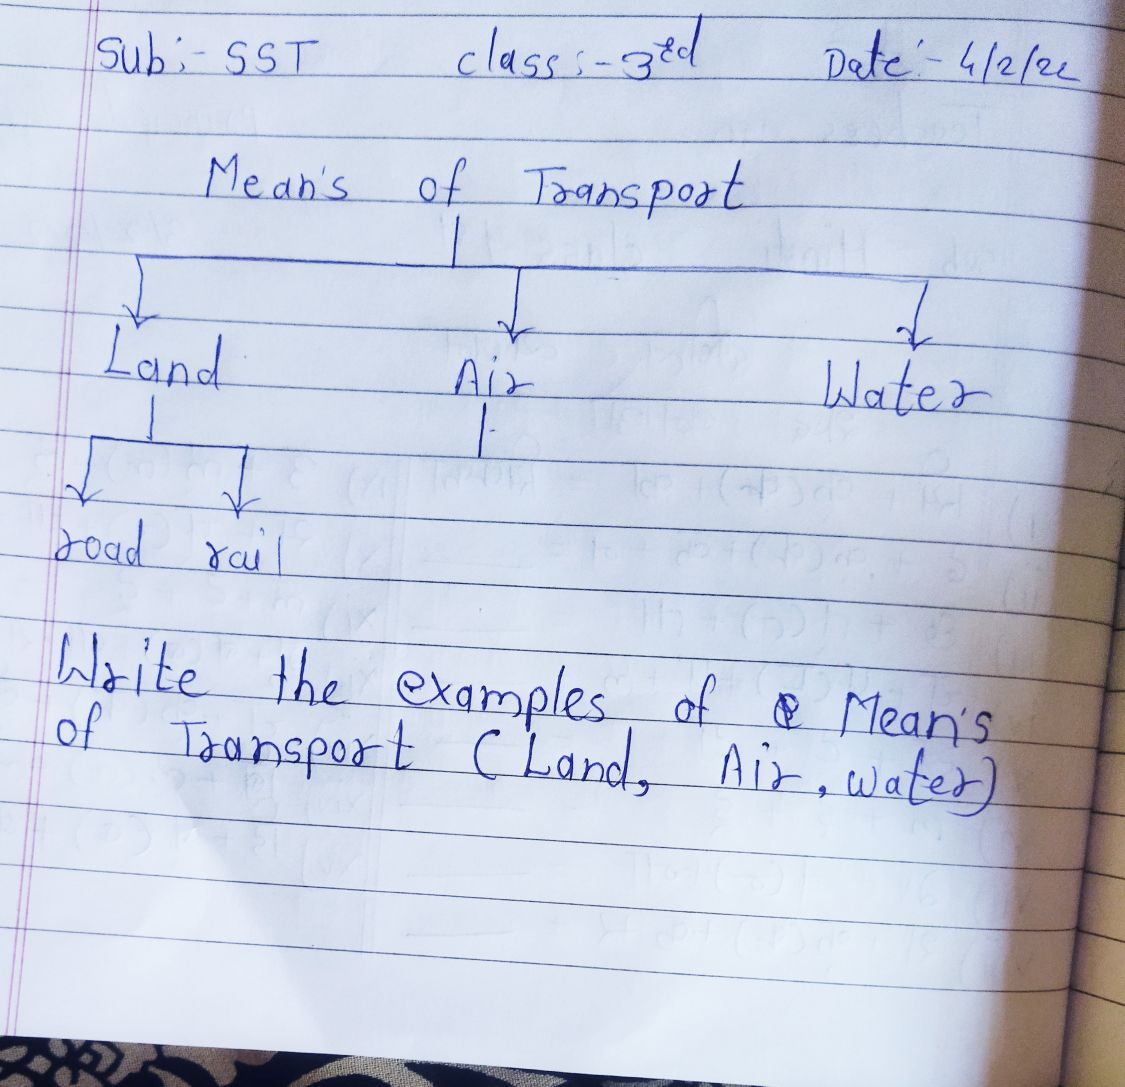 Sub:- SST class:- 3rd Date:- 4/2/22
Mean's of Transport
Land Air Water
road rail
Write the examples of Mean's
of Transport (Land, Air, water)